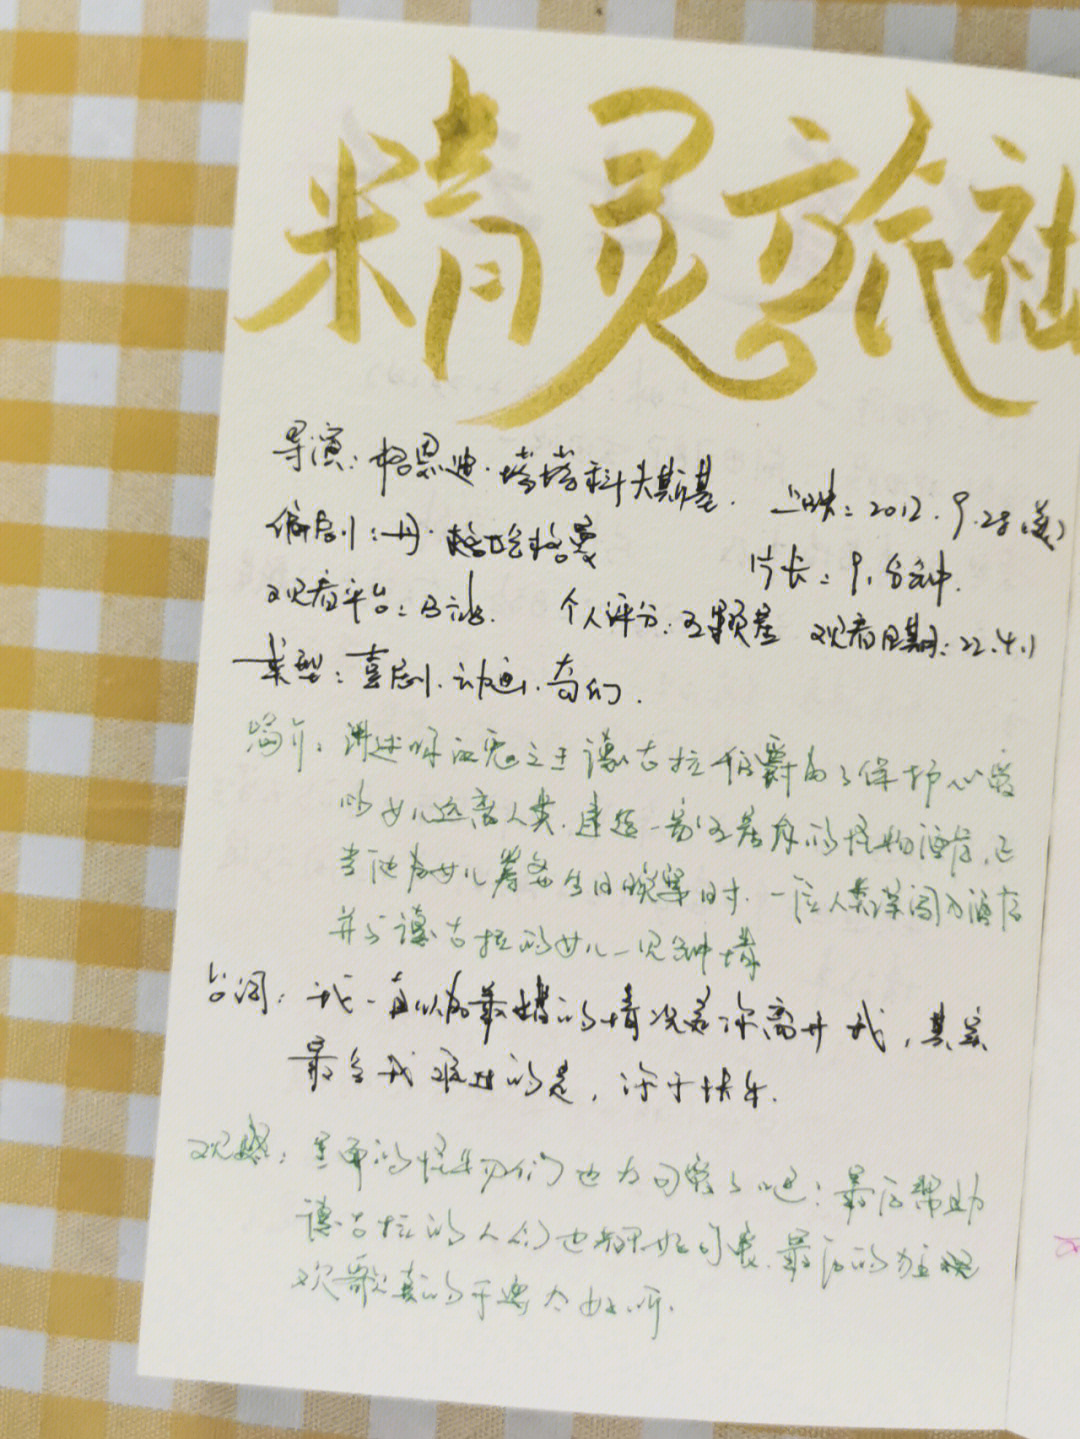 精灵旅社
导演：格恩迪·塔塔科夫斯基. 上映：2012.9.28(美)
编剧：丹· 片长：91分钟.
观看平台：B站. 个人评分：五颗星 观看日期：22.4.1
类型：喜剧.动画.奇幻.
简介：讲述吸血鬼之王德古拉伯爵为了保护心爱
的女儿远离人类.建造一家五星级的怪物酒店.正
当他为女儿筹备生日晚宴时.一位人类误闯入酒店
并与德古拉的女儿一见钟情
台词：我一直以为最糟的情况是你离开我，其实
最令我难过的是，你不快乐.
观感：里面的怪物们也太可爱了吧；最后帮助
德古拉的人们也都好可爱.最后的
欢歌真的不要太好听.